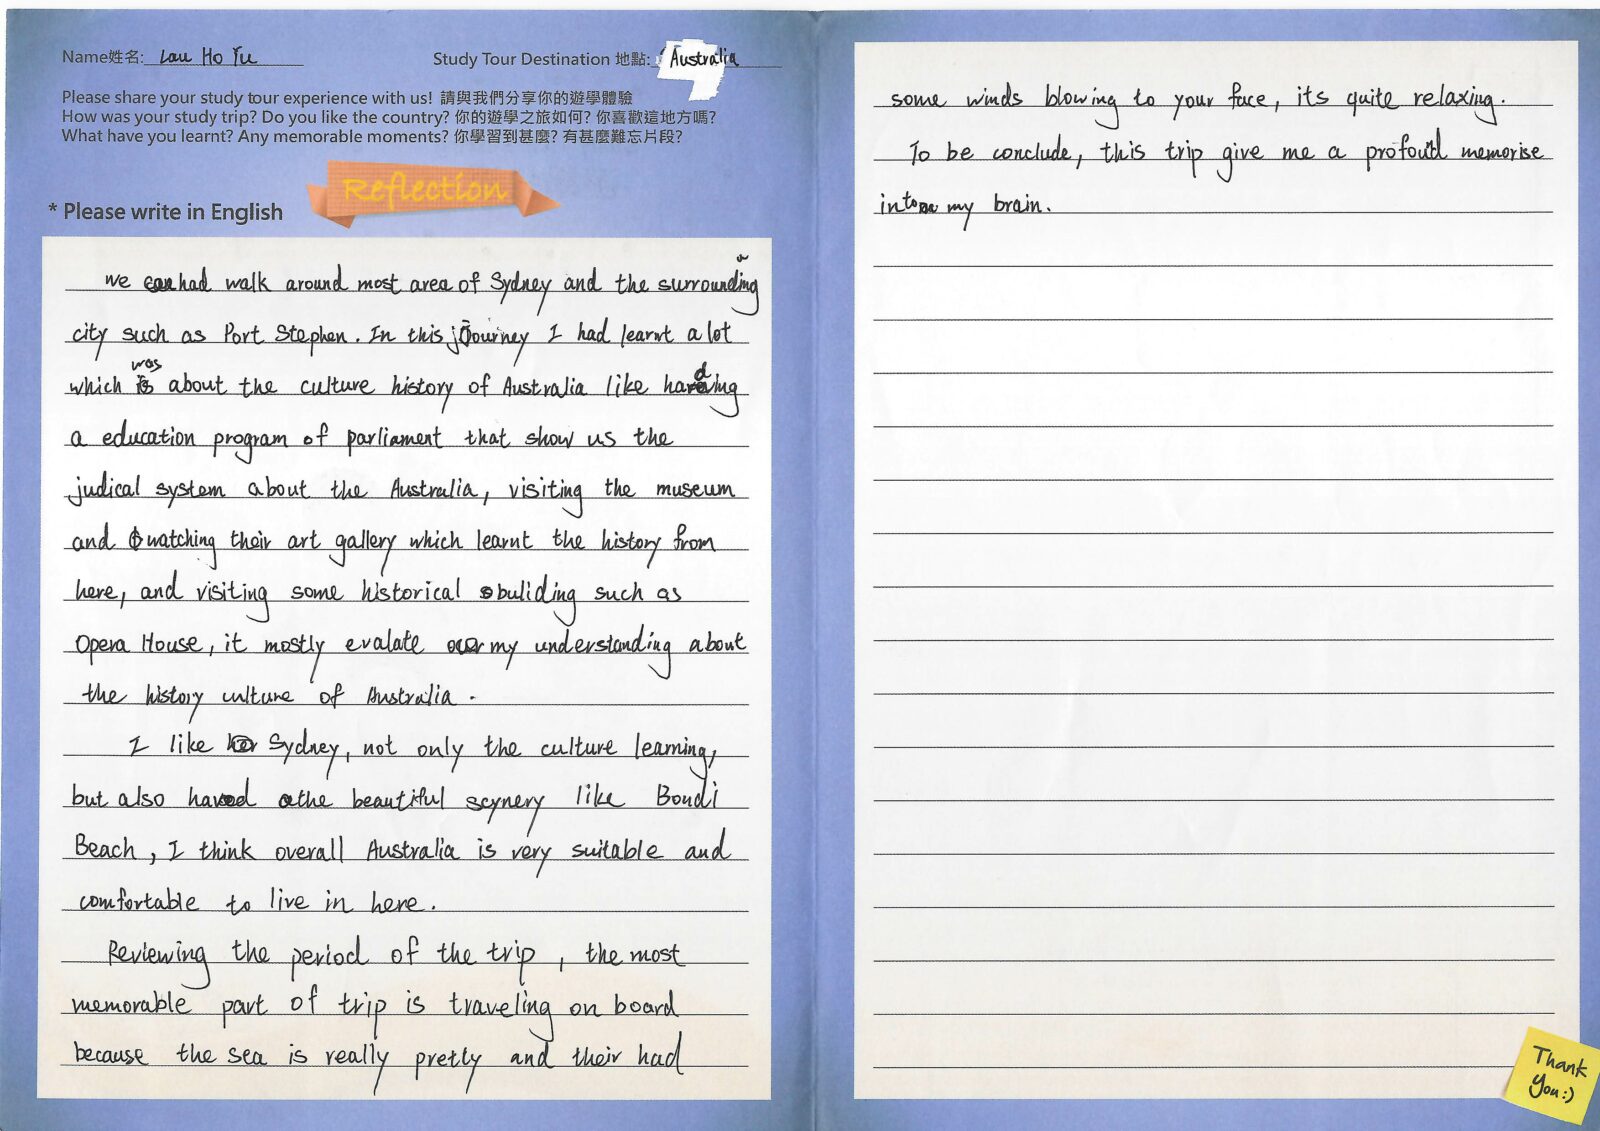 Name姓名: Lau Ho Yu
Study Tour Destination 地點: Australia
Please share your study tour experience with us! 請與我們分享你的遊學體驗
How was your study trip? Do you like the country? 你的遊學之旅如何? 你喜歡這地方嗎?
What have you learnt? Any memorable moments? 你學習到甚麼? 有甚麼難忘片段?
Reflection
* Please write in English
We had walk around most area of Sydney and the surrounding
city such as Port Stephen. In this journey I had learnt a lot
which was about the culture history of Australia like had
a education program of parliament that show us the
judical system about the Australia, visiting the museum
and watching their art gallery which learnt the history from
here, and visiting some historical buliding such as
Opera House, it mostly evalate my understanding about
the history culture of Australia.
I like Sydney, not only the culture learning,
but also had the beautiful scynery like Bondi
Beach, I think overall Australia is very suitable and
comfortable to live in here.
Reviewing the period of the trip, the most
memorable part of trip is traveling on board
because the sea is really pretty and their had
some winds blowing to your face, its quite relaxing.
To be conclude, this trip give me a profoud memorise
into my brain.
Thank
You:)